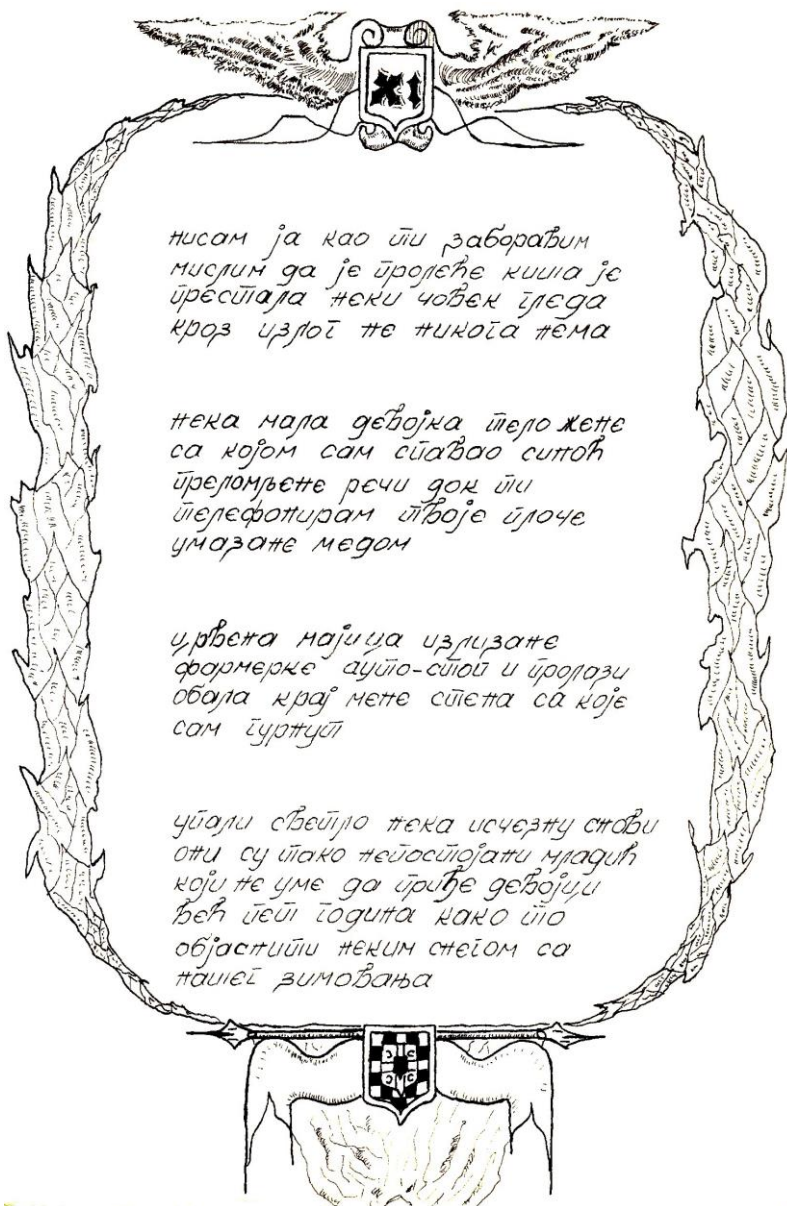 XI
нисам ја као ти заборавим
мислим да је пролеће киша је
престала неки човек гледа
кроз излог не никога нема
нека мала девојка тело жене
са којом сам спавао синоћ
преломљене речи док ти
телефонирам твоје плоче
умазане медом
црвена мајица излизане
фармерке ауто-стоп и пролази
обала крај мене стена са које
сам гурнут
упали светло нека исчезну снови
они су тако непостојани младић
који не уме да приђе девојци
већ пет година како то
објаснити неким снегом са
нашег зимовања